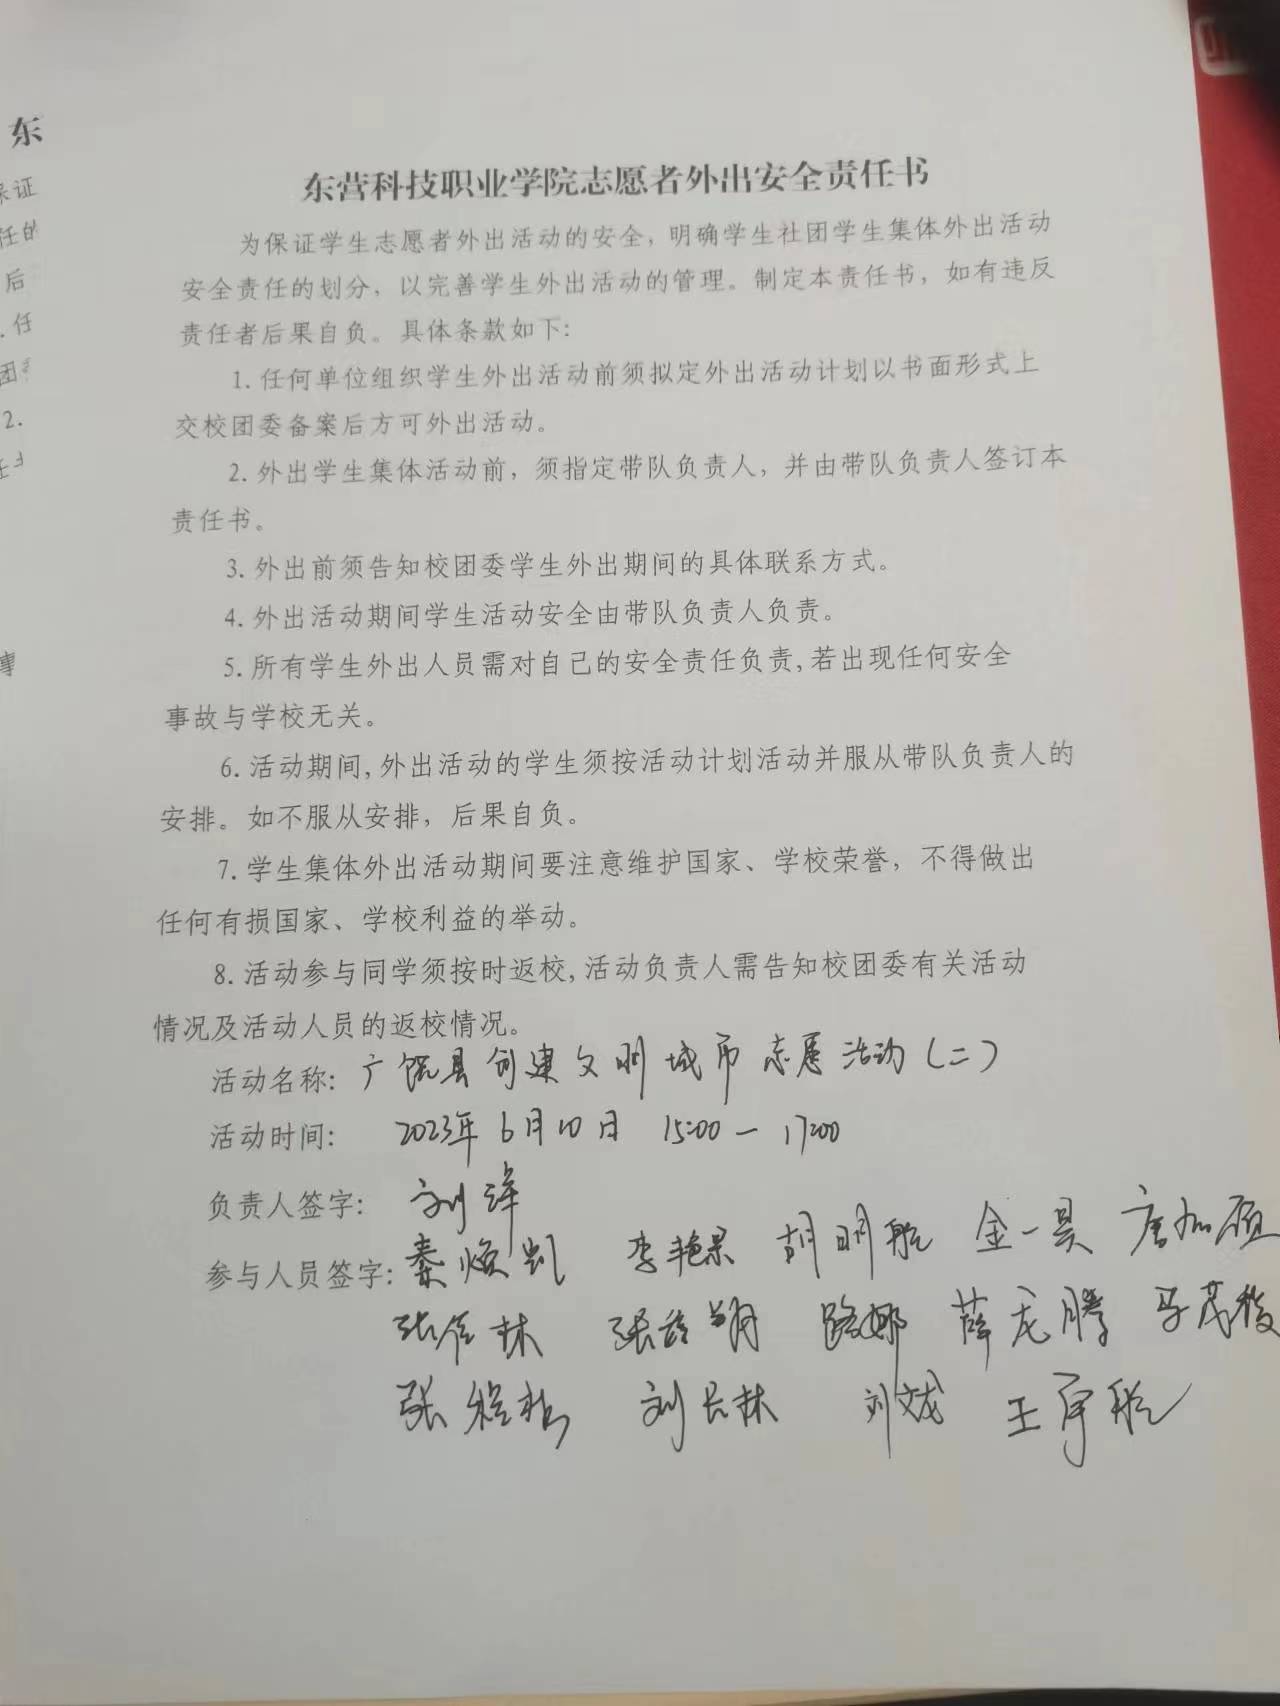 东
保证
任的
后
.任
团
2.
任
事
东营科技职业学院志愿者外出安全责任书
为保证学生志愿者外出活动的安全，明确学生社团学生集体外出活动
安全责任的划分，以完善学生外出活动的管理。制定本责任书，如有违反
责任者后果自负。具体条款如下:
1.任何单位组织学生外出活动前须拟定外出活动计划以书面形式上
交校团委备案后方可外出活动。
2.外出学生集体活动前，须指定带队负责人，并由带队负责人签订本
责任书。
3.外出前须告知校团委学生外出期间的具体联系方式。
4.外出活动期间学生活动安全由带队负责人负责。
5.所有学生外出人员需对自己的安全责任负责,若出现任何安全
事故与学校无关。
6.活动期间,外出活动的学生须按活动计划活动并服从带队负责人的
安排。如不服从安排，后果自负。
7.学生集体外出活动期间要注意维护国家、学校荣誉，不得做出
任何有损国家、学校利益的举动。
8.活动参与同学须按时返校,活动负责人需告知校团委有关活动
情况及活动人员的返校情况。
活动名称: 广饶县创建文明城市志愿活动(二)
活动时间: 2023年6月10日 15:00-17:00
负责人签字: 刘洋
参与人员签字: 秦焕凯 李艳果 胡明航 金一昊
张佳林 路娜 薛龙腾 马茂俊
刘长林 刘文龙 王宇航